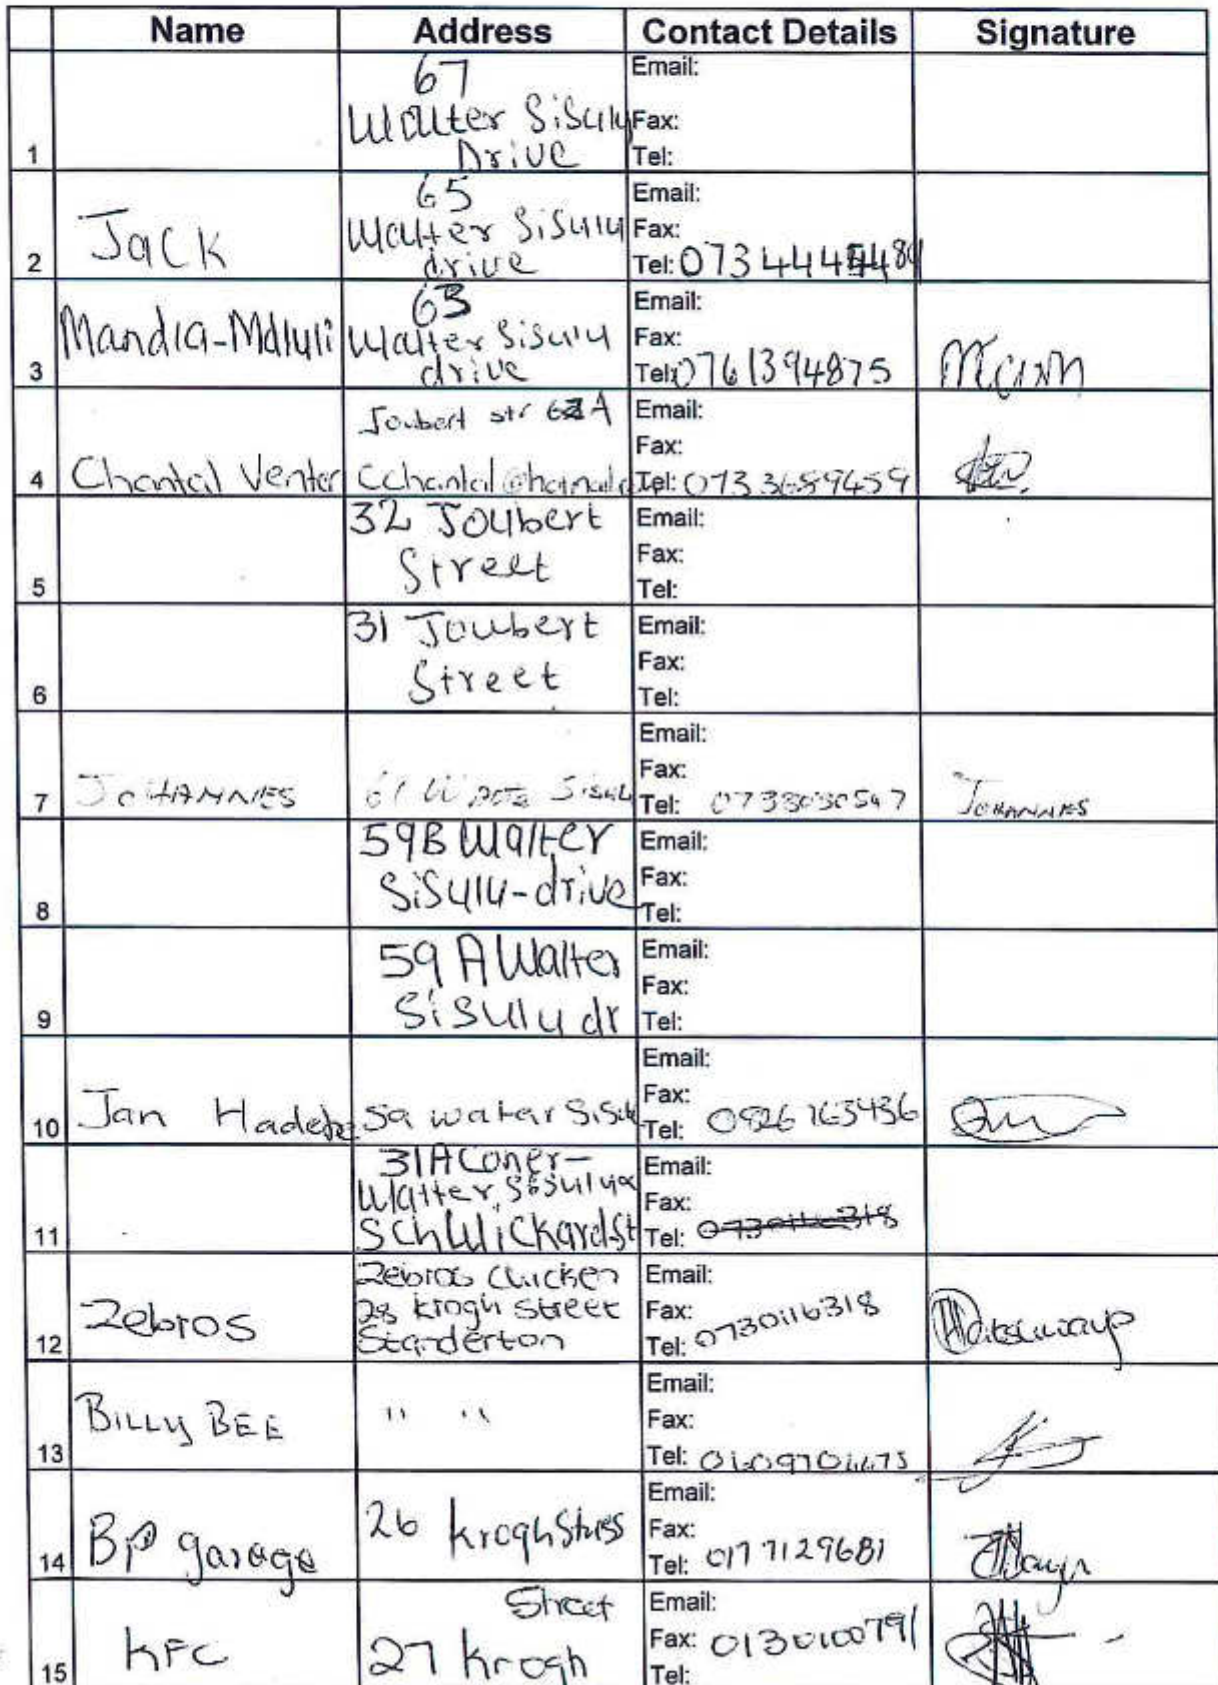 Name Address Contact Details Signature
67
Walter Sisulu
Drive
Email:
Fax:
Tel:
1
65
Walter Sisulu
drive
Jack
Email:
Fax:
Tel: 073444
2
63
Walter Sisulu
drive
Mandla-Mdluli
Email:
Fax:
Tel: 0761394875
3
Joubert str
Chantal Venter
Email:
Fax:
Tel: 0733689459
4
32 Joubert
Street
Email:
Fax:
Tel:
5
31 Joubert
Street
Email:
Fax:
Tel:
6
JOHANNES
61
Email:
Fax:
Tel: 0733030547
JOHANNES
7
59B Walter
Sisulu-drive
Email:
Fax:
Tel:
8
59 A Walter
Sisulu dr
Email:
Fax:
Tel:
9
Jan
59 watar Sisulu
Email:
Fax:
Tel: 0826163436
10
31A Coner-
Walter Sisulu
Schwickard St
Email:
Fax:
Tel: 0730116318
11
Zebros
Zebros Chicken
28 krogh Street
Standerton
Email:
Fax:
Tel: 0730116318
12
BILLY BEE
" "
Email:
Fax:
Tel:
13
BP garage
26 krogh
Email:
Fax:
Tel: 0177129681
14
KFC
Street
27 krogh
Email:
Fax: 0130100791
Tel:
15